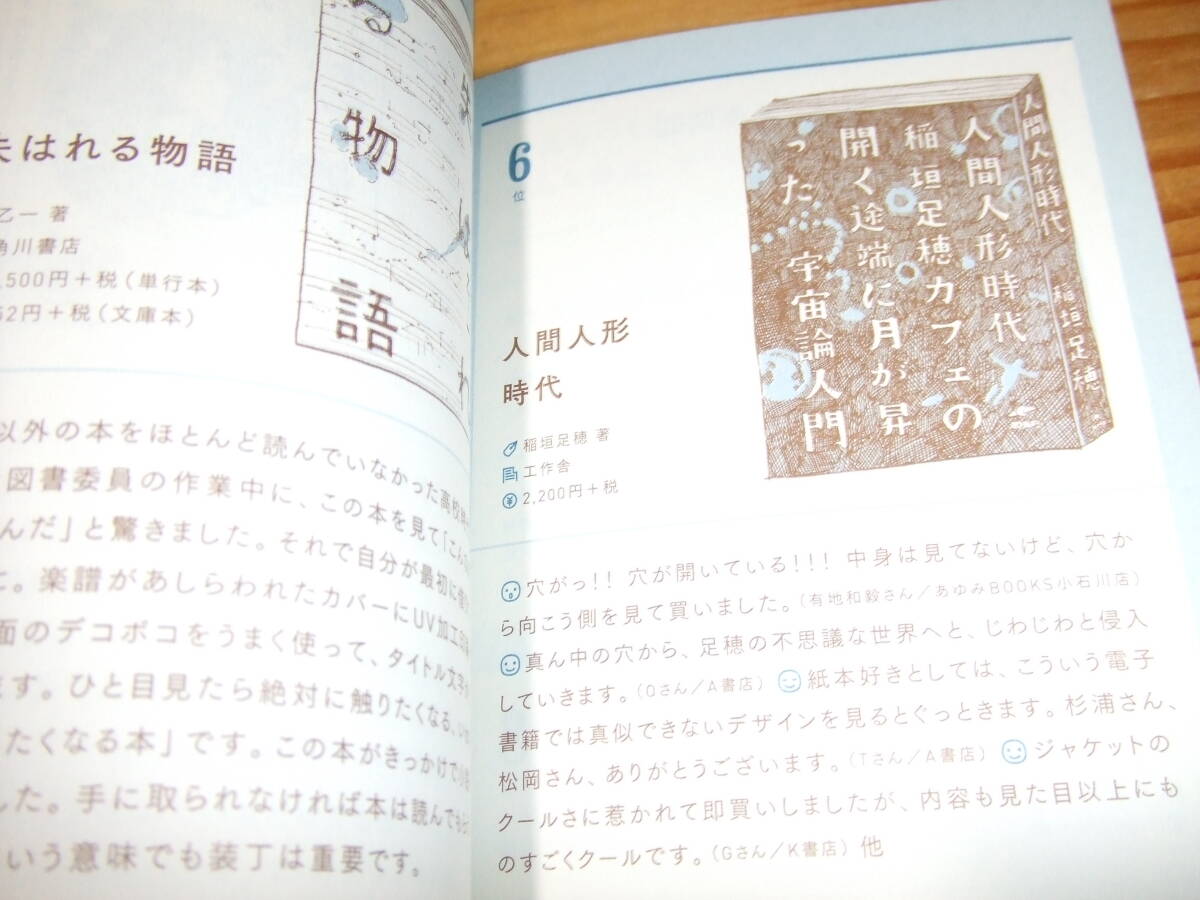 物
語
失はれる物語
乙一 著
角川書店
,500円＋税（単行本）
52円＋税（文庫本）
以外の本をほとんど読んでいなかった高校
図書委員の作業中に、この本を見て「こん
んだ」と驚きました。それで自分が最初に
に。楽譜があしらわれたカバーにUV加工
面のデコボコをうまく使って、タイトル文字
ます。ひと目見たら絶対に触りたくなる、
たくなる本」です。この本がきっかけで
した。手に取られなければ本は読んでも
いう意味でも装丁は重要です。
6
位
人間人形
時代
稲垣足穂 著
工作舎
2,200円＋税
人間人形時代
稲垣足穂
人間人形時代
稲垣足穂カフェの
開く途端に月が昇
った 宇宙論入門
穴がっ!! 穴が開いている!!! 中身は見てないけど、穴か
ら向こう側を見て買いました。（有地和毅さん／あゆみBOOKS小石川店）
真ん中の穴から、足穂の不思議な世界へと、じわじわと侵入
していきます。（Qさん／A書店） 紙本好きとしては、こういう電子
書籍では真似できないデザインを見るとぐっときます。杉浦さん、
松岡さん、ありがとうございます。（Tさん／A書店） ジャケットの
クールさに惹かれて即買いしましたが、内容も見た目以上にも
のすごくクールです。（Gさん／K書店）他